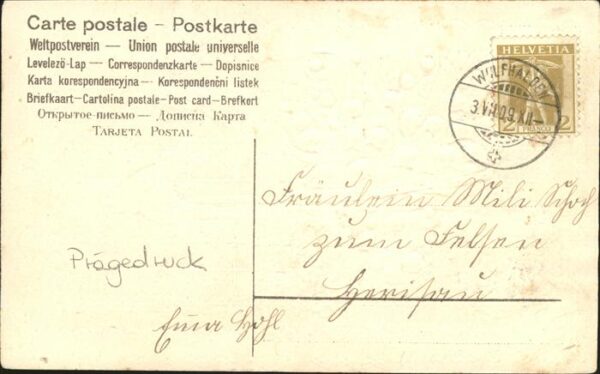 Carte postale – Postkarte
Weltpostverein — Union postale universelle
Levelező-Lap — Correspondenzkarte — Dopisnice
Karta korespondencyjna – Korespondenční listek
Briefkaart – Cartolina postale – Post card – Brefkort
Открытое письмо — Дописна Карта
Tarjeta Postal
HELVETIA
WOLFHALDEN
3.VII.09.XII–
2 FRANCO 2
Fräulein Mili Schoch
zum Felsen
Herisau
Prägedruck
Emma Hohl